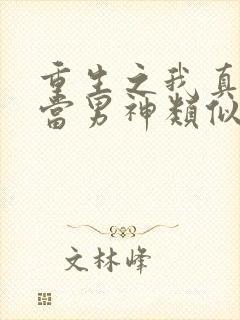 重生之我真
當男神類似
文林峰